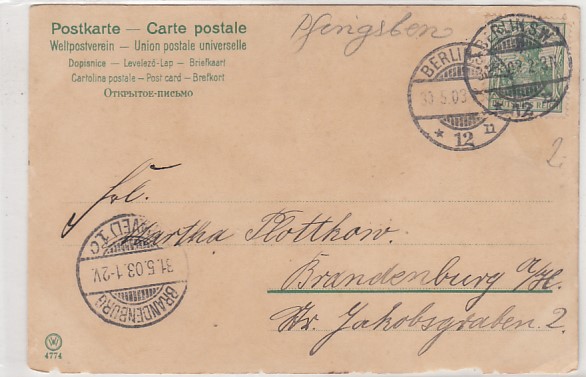 Postkarte — Carte postale
Weltpostverein — Union postale universelle
Dopisnice — Levelező-Lap — Briefkaart
Cartolina postale — Post card — Brefkort
Открытое-письмо
Pfingsten
BERLIN
31.5.03
* 12 n
BERLIN S.W.
* 12
2
Frl.
Martha Plottkow.
Brandenburg a/H.
Gr. Jakobsgraben. 2.
BRANDENBURG
31.5.03.1-2V.
(HAVEL) 1 C
4774